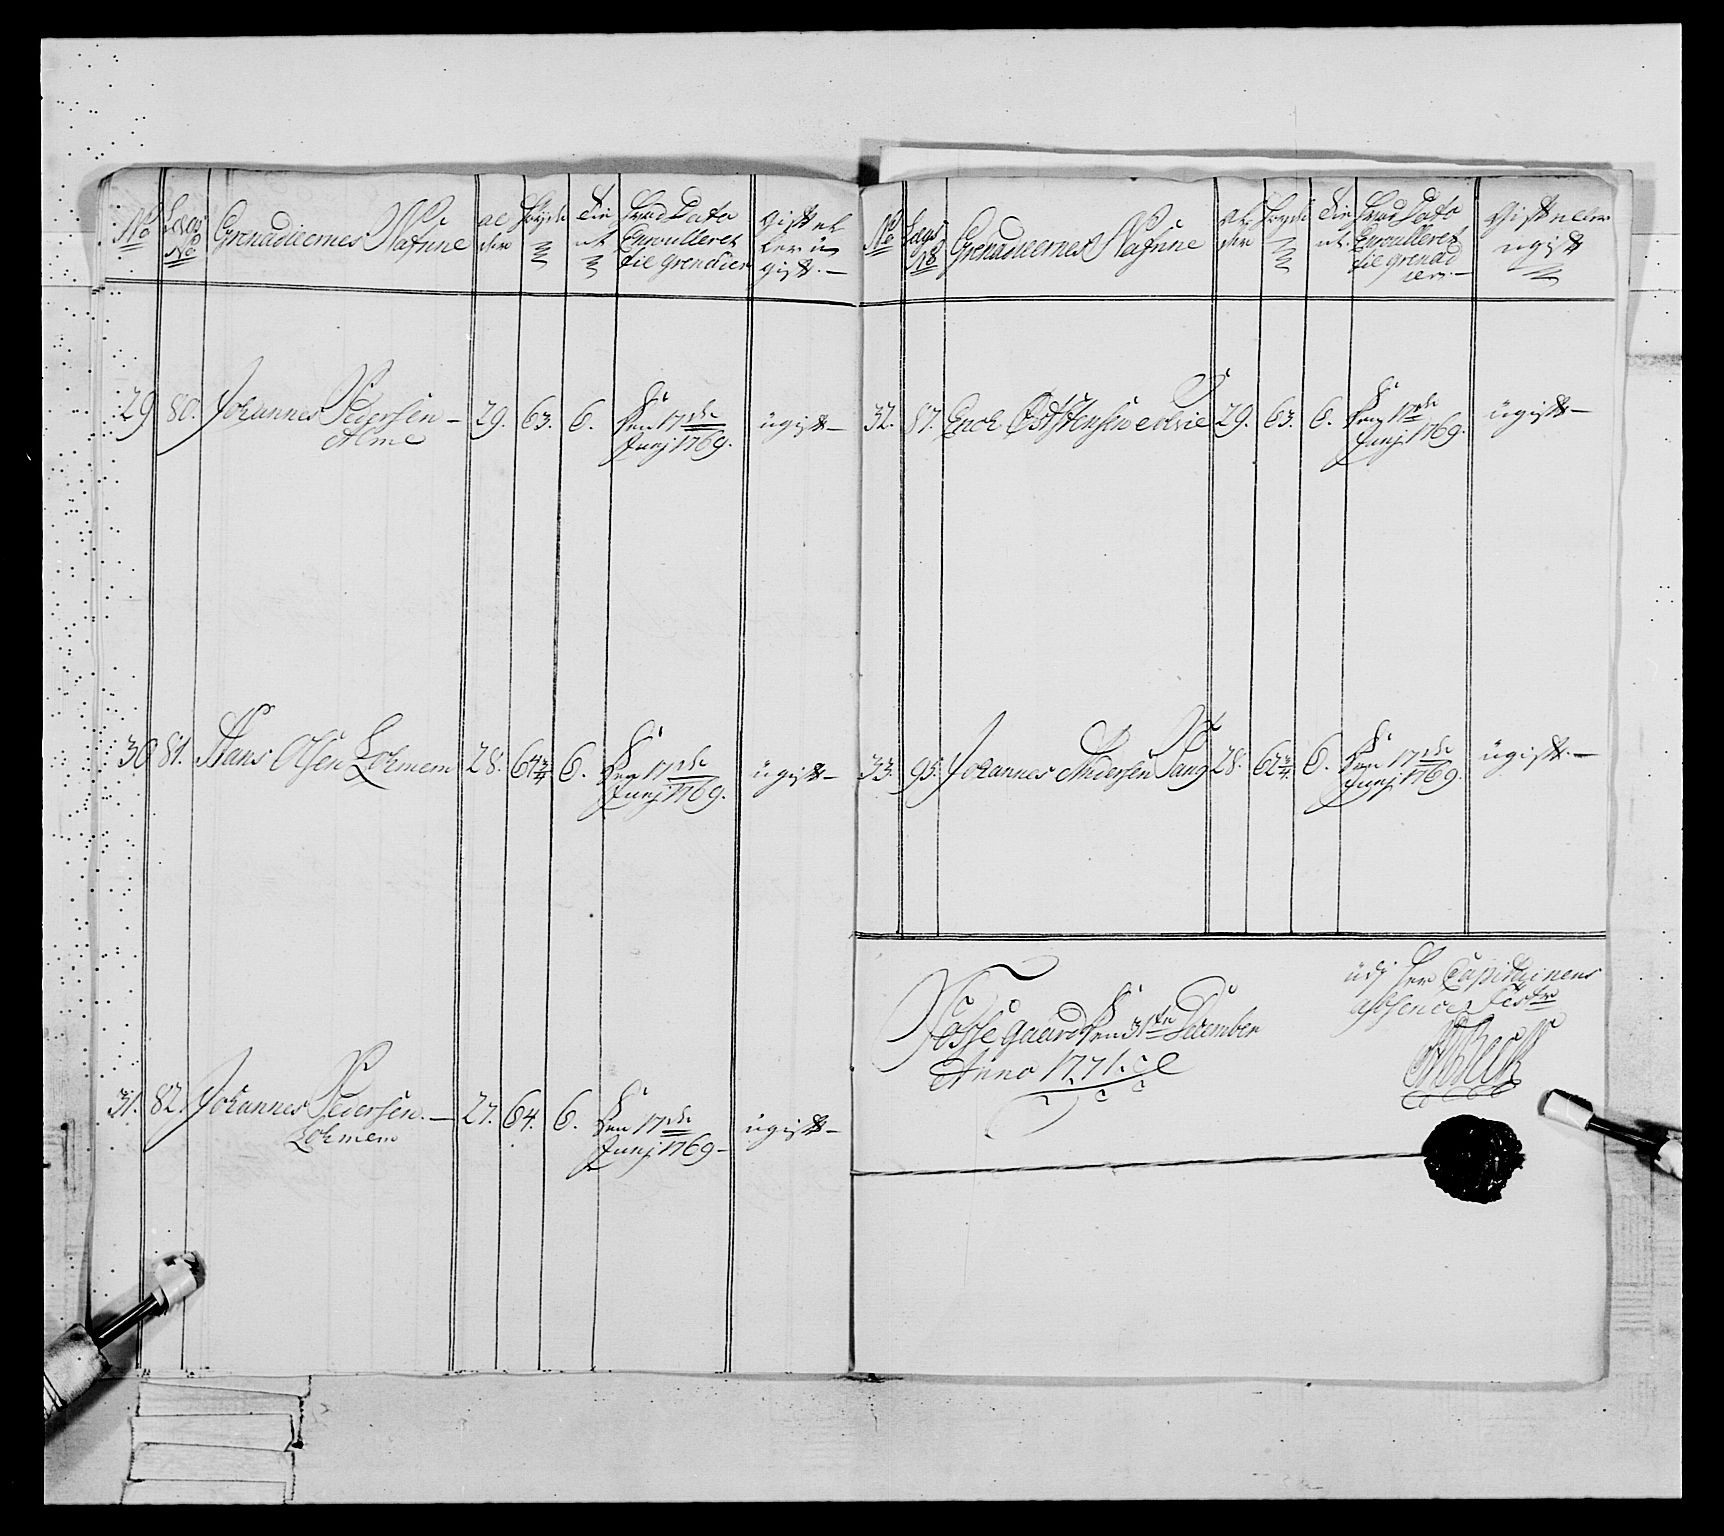 No
Lægs
No
Grenadeernes Nafnne
al
der
Høyde
Tie
nt
hvad Dato
Enrulleret
til grendier
Gift el
ler u
gift.—
29
80.
Johannes Pedersen —
Alme
29.
63.
6.
Den 17de
Junj 1769.
ügift —
30
81.
Hans Olsen Lohmem
28.
64¾
6.
Den 17de
Junj 1769.
ügift —
31.
82.
Johannes Pedersen. —
Lohmem
27.
64.
6.
Den 17de
Junj 1769 —
ügift —
No
Lægs
No
Grenadeernes Nafnne
Al
der
Høyde
Tie
nt.
hvad Dato
Enrulleret
til grenad
iers. —
Gift eller
ugift
32.
87.
Enoch
29.
63.
6.
Den 17de
Junj 1769.
ügift —
33.
95.
Johannes Andersen Vang
28.
62¾
6.
Den 17de
Junj 1769.
ügift. —
Fosse gaard Den 31te December
Anno 1771.
üdj Her Capitainens
absence